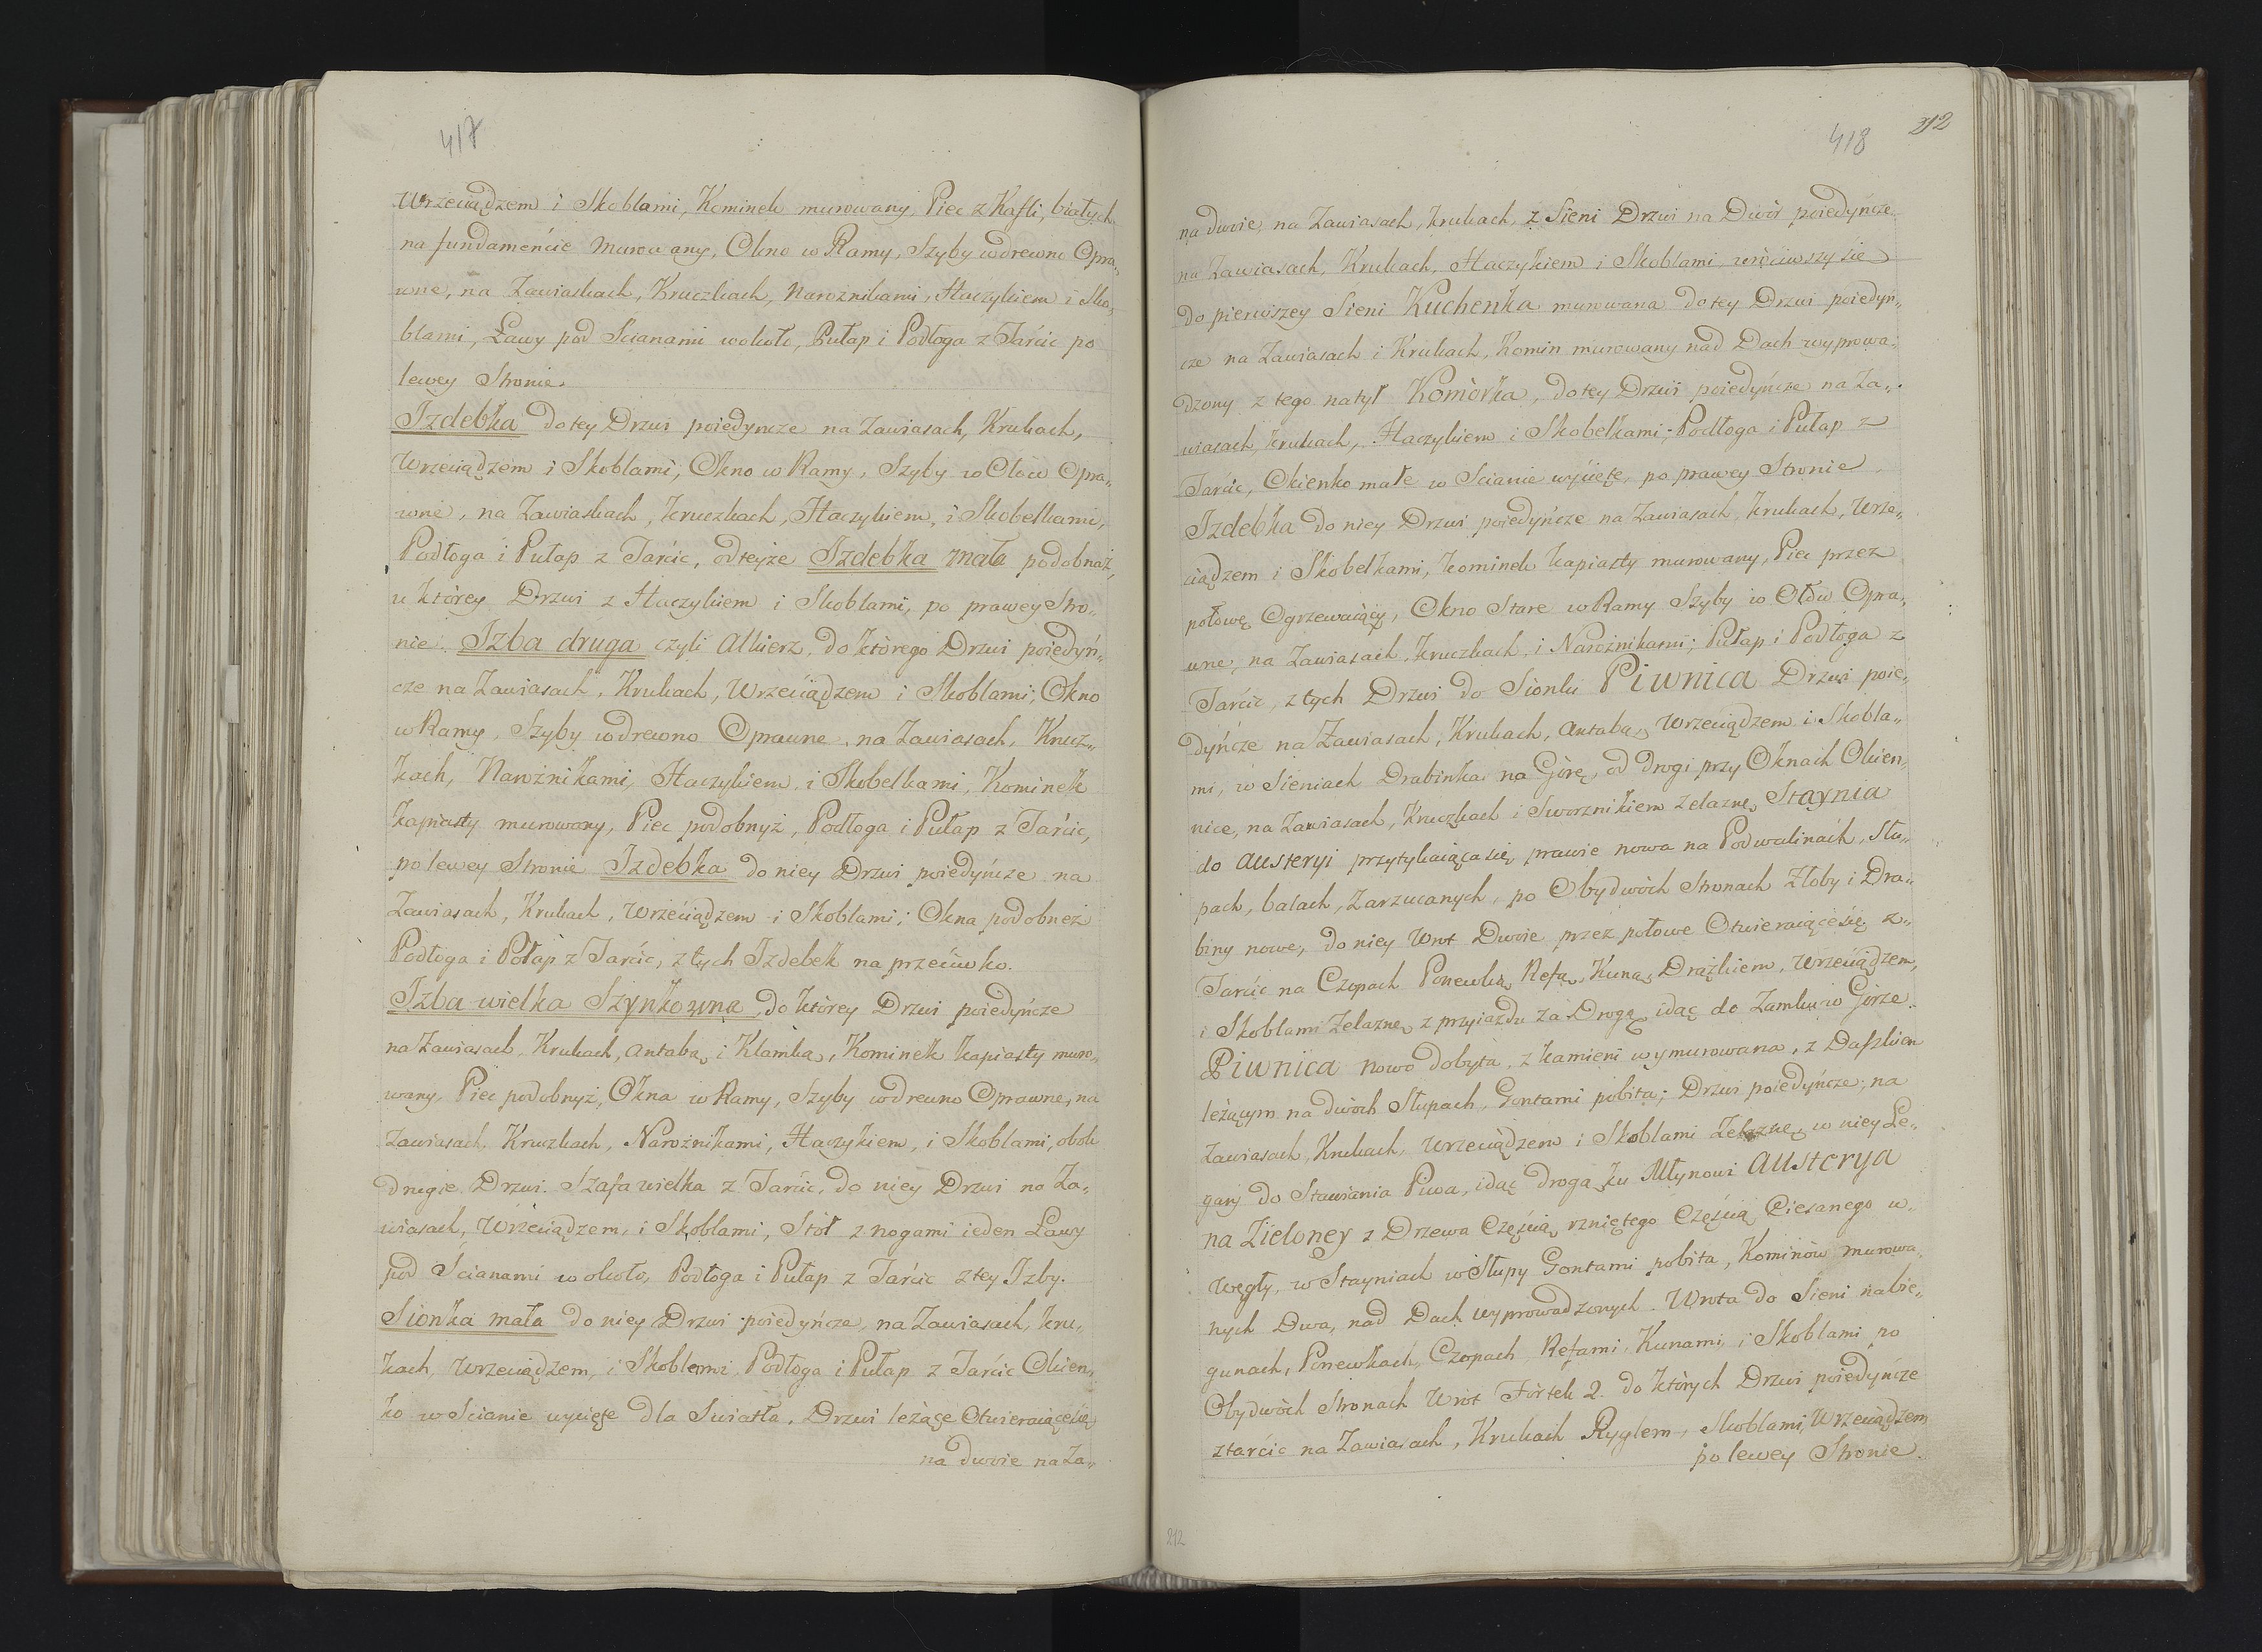 417
Wrzeciądzem i Skoblami, Kominek murowany, Piec z Kafli białych
na fundamencie murowany, Okno w Ramy, Szyby w drewno Opra„
wne, na Zawiaskach, Kruczkach, Narożnikami, Haczykiem i Sko„
blami, Ławy pod Scianami wokoło, Pułap i Podłoga z Tarcic po
lewey Stronie.
Izdebka do tey Drzwi poiedyncze na Zawiasach, Krukach,
Wrzeciądzem i Skoblami, Okno w Ramy, Szyby w Ołow Opra„
wne, na Zawiaskach, Kruczkach, Haczykiem, i Skobelkami,
Podłoga i Pułap z Tarcic, odteyże Izdebka mała podobnaż,
u ktòrey Drzwi z Haczykiem i Skoblami, po prawey Stro„
nie. Izba druga czyli Alkierz, do ktòrego Drzwi poiedyń„
cze na Zawiasach, Krukach, Wrzeciądzem i Skoblami; Okno
w Ramy, Szyby w drewno Oprawne, na Zawiasach, Krucz„
kach, Narożnikami, Haczykiem, i Skobelkami, Kominek
kapiasty murowany, Piec podobnyż, Podłoga i Pułap z Tarcic,
po lewey Stronie Izdebka do niey Drzwi poiedyńcze na
Zawiasach, Krukach, Wrzeciądzem i Skoblami; Okna podobneż
Podłoga i Połap z Tarcic, z tych Izdebek na przeciwko.
Izba wielka Szynkowna, do ktòrey Drzwi poiedyńcze
na Zawiasach, Krukach, Antabą, i Klamką, Kominek kapiasty muro„
wany, Piec podobnyż, Okna w Ramy, Szyby w drewno Oprawne, na
Zawiasach, Kruczkach, Narożnikami, Haczykiem, i Skoblami, obok
drugie Drzwi. Szafa wielka z Tarcic, do niey Drzwi na Za„
wiasach, Wrzeciądzem, i Skoblami, Stòł z nogami ieden Ławy
pod Ścianami wokoło, Podłoga i Pułap z Tarcic z tey Izby.
Sionka mała do niey Drzwi poiedyńcze, na Zawiasach, kru„
kach, Wrzeciądzem, i Skoblami, Podłoga i Pułap z Tarcic Okien„
ko w Scianie wycięte dla Swiatła, Drzwi leżące Otwieraiącesię
na dwoie na Za„
418
212
na dwoie, na Zawiasach, krukach, z Sieni Drzwi na Dwòr poiedyńcze
na Zawiasach, Krukach, Haczykiem i Skoblami, wròciwszy się
do pierwszey Sieni Kuchenka murowana do tey Drzwi poiedyń„
cze na Zawiasach i Krukach, Komin murowany nad Dach wyprowa„
dzony z tego na tył Komòrka, do tey Drzwi poiedyńcze na Za„
wiasach, krukach, Haczykiem i Skobelkami; Podłoga i Pułap z
Tarcic, Okienko małe w Scianie wycięte, po prawey Stronie
Izdebka do niey Drzwi poiedyńcze na Zawiasach, krukach, Wrze„
ciądzem i Skobelkami, kominek kapiasty murowany, Piec przez
połowę Ogrzewaiący, Okno Stare w Ramy Szyby w Ołòw Opra„
wne, na Zawiasach, kruczkach, i Narożnikami; Pułap i Podłoga z
Tarcic, z tych Drzwi do Sionki Piwnica Drzwi poie„
dyńcze na Zawiasach, Krukach, Antabą, Wrzeciądzem i Skobla„
mi, w Sieniach Drabinka na Gòrę, od drogi przy Oknach Okien„
nice, na Zawiasach, Kruczkach i Sworznikiem żelazne, Staynia
do Austeryi przytykaiąca się prawie nowa na Podwalinach, Słu„
pach, balach, Zarzucanych, po Obydwòch Stronach Żłoby i Dra„
biny nowe, do niey Wrot Dwoie przez połowe Otwieraiącesię z„
Tarcic na Czopach Ponewką, Refą, Kuną, Drążkiem, Wrzeciądzem,
i Skoblami Żelazne, z przyiazdu za Drogą, idąc do Zamku w Gòrze
Piwnica nowo dobyta, z kamieni wymurowana, z Daszkiem
leżącym na dwòch Słupach, Gontami pobita; Drzwi poiedyńcze, na
Zawiasach, Krukach, Wrzeciądzem i Skoblami Żelazne, w niey Le„
gary do Stawiania Piwa, idąc drogą ku Młynowi Austerya
na Zieloney z Drzewa Częścią rzniętego Częścią Ciesanego w
Węgły, w Stayniach w Słupy Gontami pobita, Kominòw murowa„
nych Dwa, nad Dach wyprowadzonych. Wrota do Sieni na bie„
gunach, Ponewkach, Czopach Refami, Kunami, i Skoblami po
Obydwòch Stronach Wròt Fòrtek 2. do ktòrych Drzwi poiedyńcze
z tarcic na Zawiasach, Krukach Ryglem, Skoblami, Wrzeciądzem
po lewey Stronie.
212